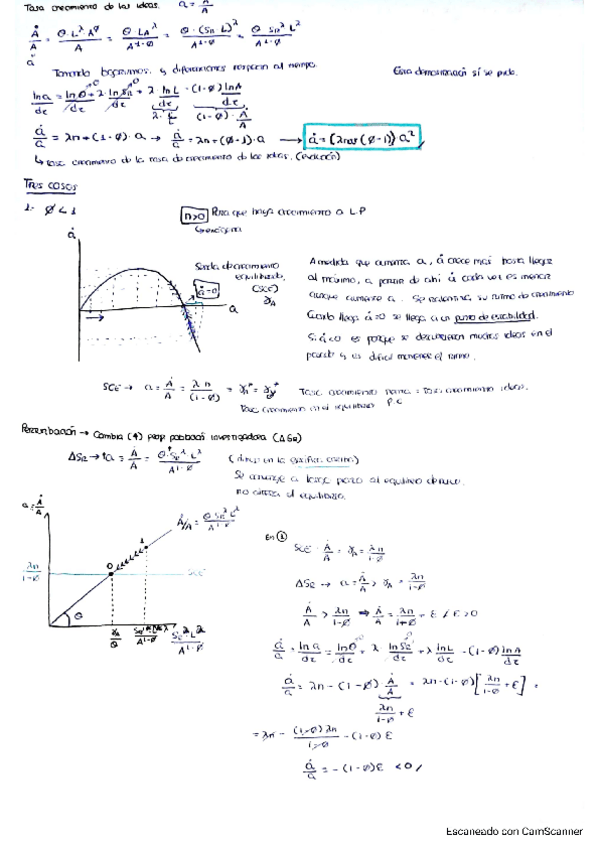 Tasa crecimiento de las ideas. a = Ȧ/A
Ȧ/A = Θ·L^λ·A^Ø/A = Θ·L_A^λ/A^(1-Ø) = Θ·(S_R·L)^λ/A^(1-Ø) = Θ·S_R^λ·L^λ/A^(1-Ø)
Tomando logaritmos y diferenciamos respecto al tiempo. Esta demostración sí se pide.
ln a/dt = ln Θ/dt + λ·ln S_R/dt + λ·ln L/dt - (1-Ø) ln A/dt
ȧ/a = λn + (1-Ø)·a → ȧ/a = λn + (Ø-1)·a → ȧ = (λn + (Ø-1)) a²
↳ tasa crecimiento de la tasa de crecimiento de las ideas. (evolución)
Tres casos
1. Ø < 1
n>0 Para que haya crecimiento a L.P
↳ exógena
ȧ
Senda de crecimiento equilibrado (SCE)
ȧ=0
a
A medida que aumenta a, ȧ crece más hasta llegar
al máximo, a partir de ahí ȧ cada vez es menor
aunque aumente a. Se ralentiza su ritmo de crecimiento
Cuando llega ȧ=0 se llega a un punto de estabilidad.
Si ȧ<0 es porque se descubrieron muchas ideas en el
pasado y es difícil mantener el ritmo.
SCE → a = Ȧ/A = λn/(1-Ø) Tasa crecimiento = Tasa crecimiento ideas.
Tasa crecimiento en el equilibrio p.c
Perturbación → Cambia (↑) prop población investigadora (ΔS_R)
ΔS_R → ↑a = Ȧ/A = Θ·S_R^λ L^λ/A^(1-Ø)
Se converge a largo plazo al equilibrio de nuevo.
no altera el equilibrio.
a = Ȧ/A
Ȧ/A = Θ·S_R^λ L^λ/A^(1-Ø)
λn/(1-Ø)
SCE
0
1
Θ
S_R^λ L^λ/A^(1-Ø)
En ①
SCE · Ȧ/A = γ_A = λn/(1-Ø)
ΔS_R → a = Ȧ/A > γ_A = λn/(1-Ø)
Ȧ/A > λn/(1-Ø) ⇒ Ȧ/A = λn/(1-Ø) + ε / ε>0
ȧ/a = ln a/dt = ln Θ/dt + λ·ln S_R/dt + λ ln L/dt - (1-Ø) ln A/dt
ȧ/a = λn - (1-Ø) Ȧ/A = λn - (1-Ø)[λn/(1-Ø) + ε] =
λn/(1-Ø) + ε
= λn - (1-Ø)λn/(1-Ø) - (1-Ø) ε
ȧ/a = -(1-Ø)ε < 0
Escaneado con CamScanner